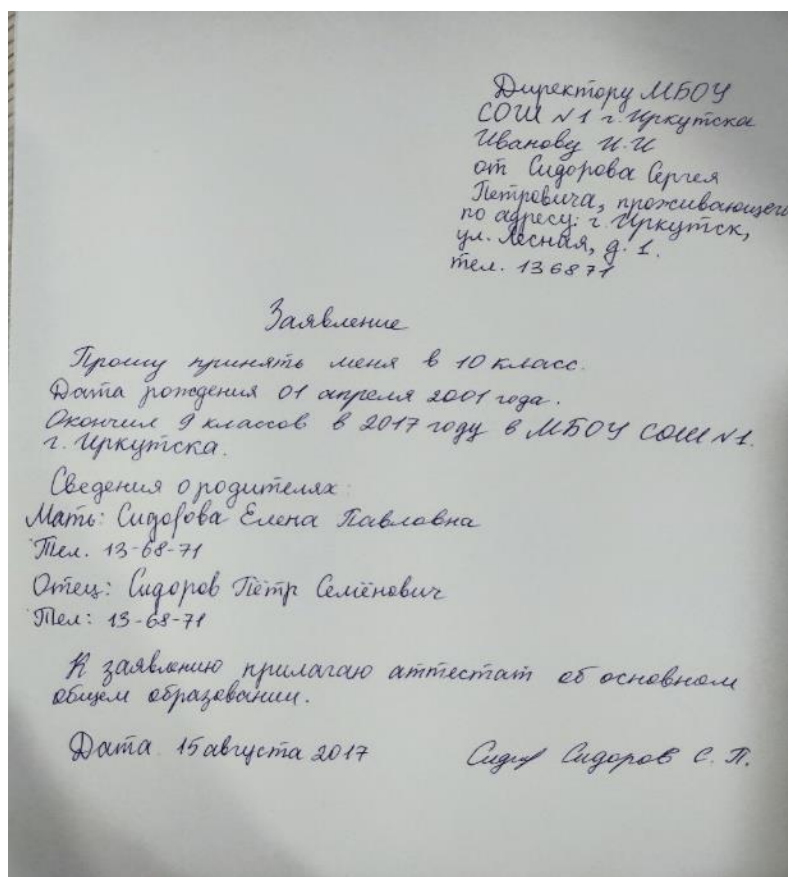 Директору МБОУ
СОШ №1 г. Иркутска
Иванову И.И
от Сидорова Сергея
Петровича, проживающего
по адресу: г. Иркутск,
ул. Лесная, д. 1.
тел. 136871
Заявление
Прошу принять меня в 10 класс.
Дата рождения 01 апреля 2001 года.
Окончил 9 классов в 2017 году в МБОУ СОШ №1.
г. Иркутска.
Сведения о родителях:
Мать: Сидорова Елена Павловна
Тел. 13-68-71
Отец: Сидоров Пётр Семёнович
Тел: 13-68-71
К заявлению прилагаю аттестат об основном
общем образовании.
Дата 15 августа 2017 Сидор Сидоров С. П.